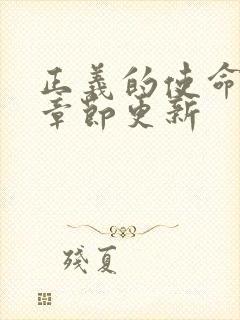 正義的使命
章節更新
殘夏